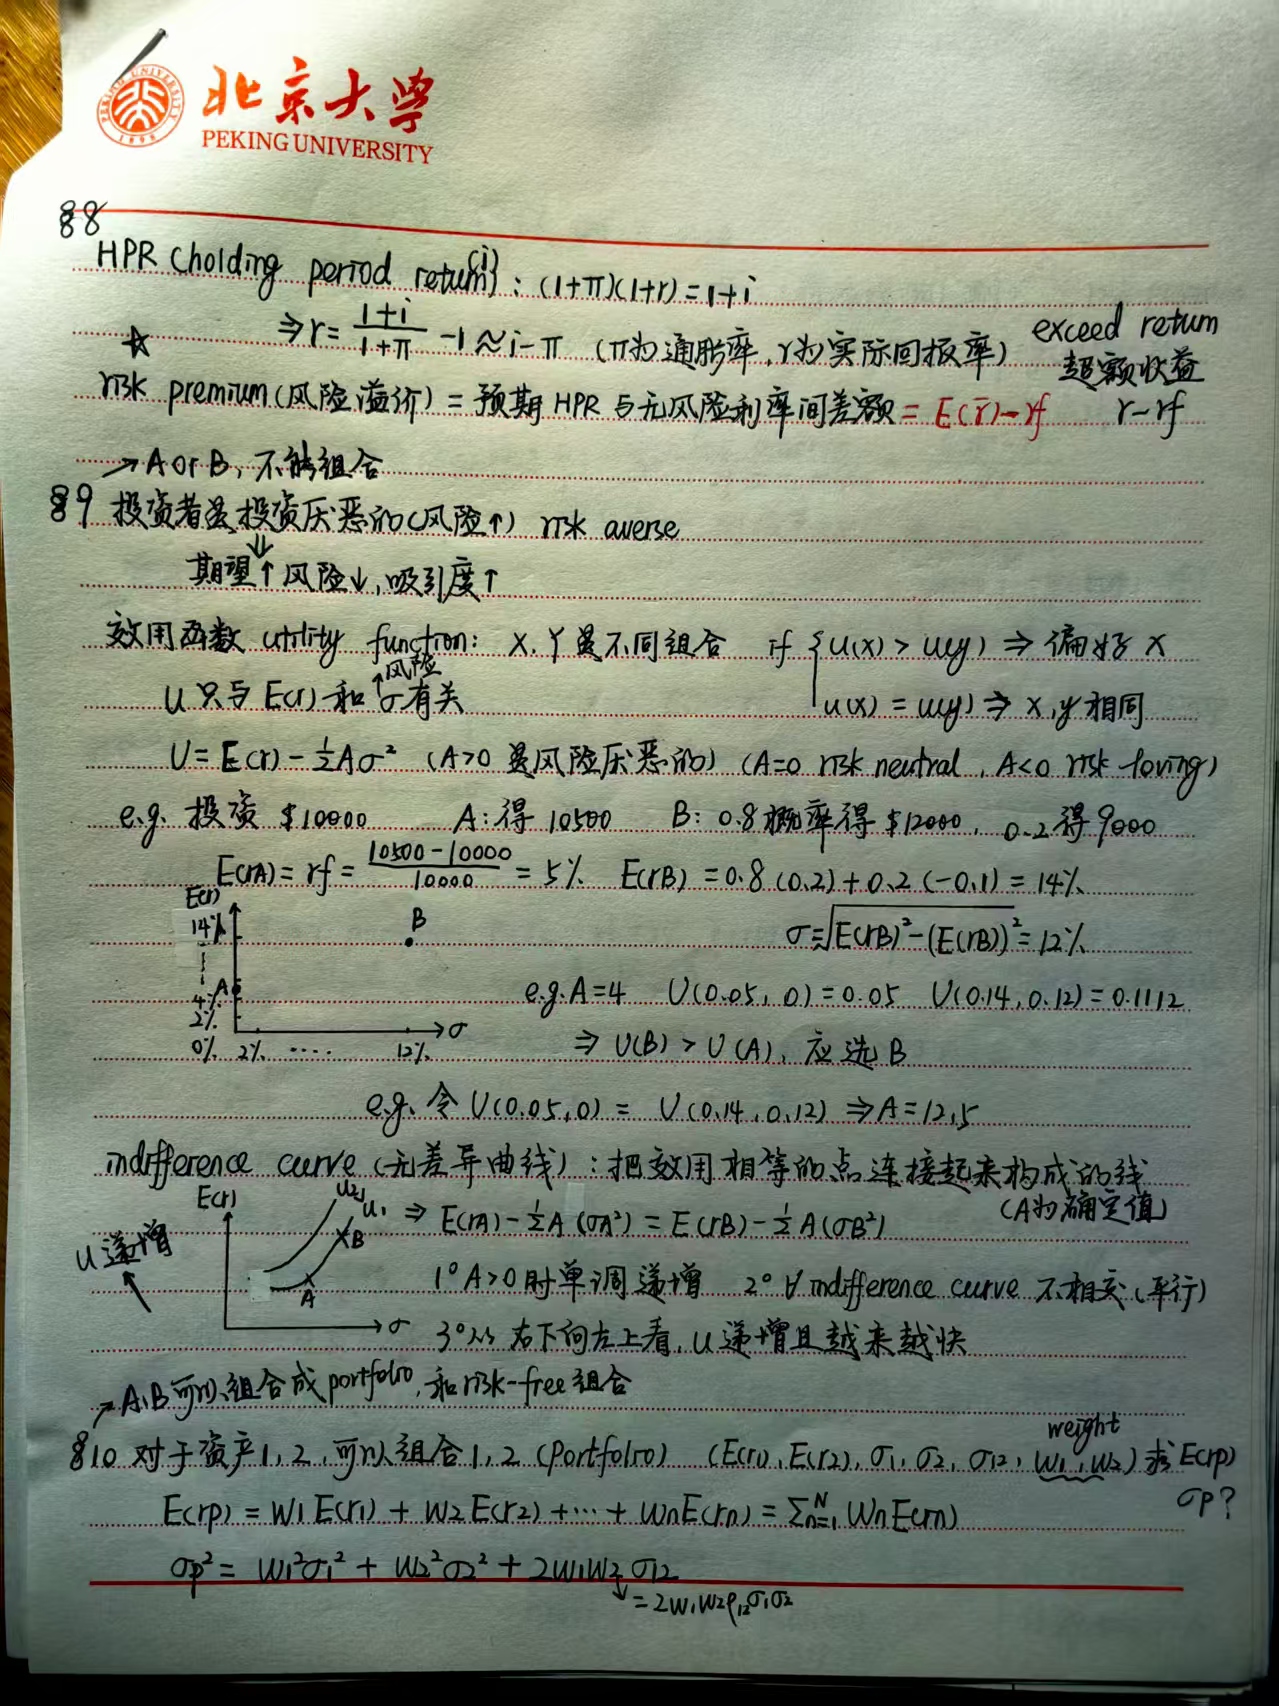 北京大学
PEKING UNIVERSITY
§8
HPR (holding period return)(i): (1+π)(1+r)=1+i
⇒ r = (1+i)/(1+π) -1 ≈ i-π (π为通胀率, r为实际回报率) exceed return
☆ 超额收益
risk premium(风险溢价) = 预期 HPR 与无风险利率间差额 = E(r̄)-rf r-rf
→ A or B, 不能组合
§9 投资者是投资厌恶的(风险↑) risk averse
⇓
期望↑ 风险↓, 吸引度↑
效用函数 utility function: X, Y 是不同组合 if { u(x) > u(y) ⇒ 偏好 x
风险
U 只与 E(r) 和 σ有关 u(x) = u(y) ⇒ x, y 相同
U = E(r) - ½Aσ² (A>0 是风险厌恶的) (A=0 risk neutral, A<0 risk-loving)
e.g. 投资 $10000 A: 得 10500 B: 0.8概率得 $12000, 0.2 得 9000
E(rA) = rf = (10500-10000)/10000 = 5% E(rB) = 0.8 (0.2) + 0.2 (-0.1) = 14%
E(r)
14% B σ=√(E(rB)²-(E(rB))²) = 12%
4% A e.g. A=4 U(0.05, 0) = 0.05 U(0.14, 0.12) = 0.1112
2% σ
0% 2% .... 12% ⇒ U(B) > U(A), 应选 B
e.g. 令 U(0.05, 0) = U(0.14, 0.12) ⇒ A = 12.5
indifference curve (无差异曲线): 把效用相等的点连接起来构成的线
(A为确定值)
E(r) u2 u1 ⇒ E(rA) - ½A (σA²) = E(rB) - ½A(σB²)
U 递增 B
A 1° A>0 时单调递增 2° ∀ indifference curve 不相交 (平行)
σ 3° 从右下向左上看, U 递增且越来越快
→ A,B 可以组合成 portfolio, 和 risk-free 组合
weight
§10 对于资产1, 2, 可以组合1, 2 (portfolio) (E(r1), E(r2), σ1, σ2, σ12, w1, w2) 求 E(rp)
σp?
E(rp) = W1 E(r1) + W2 E(r2) + ... + WnE(rn) = Σₙ₌₁ᴺ WnE(rn)
σp² = W1²σ1² + W2²σ2² + 2W1W2 σ12
↓ = 2W1W2ρ12σ1σ2